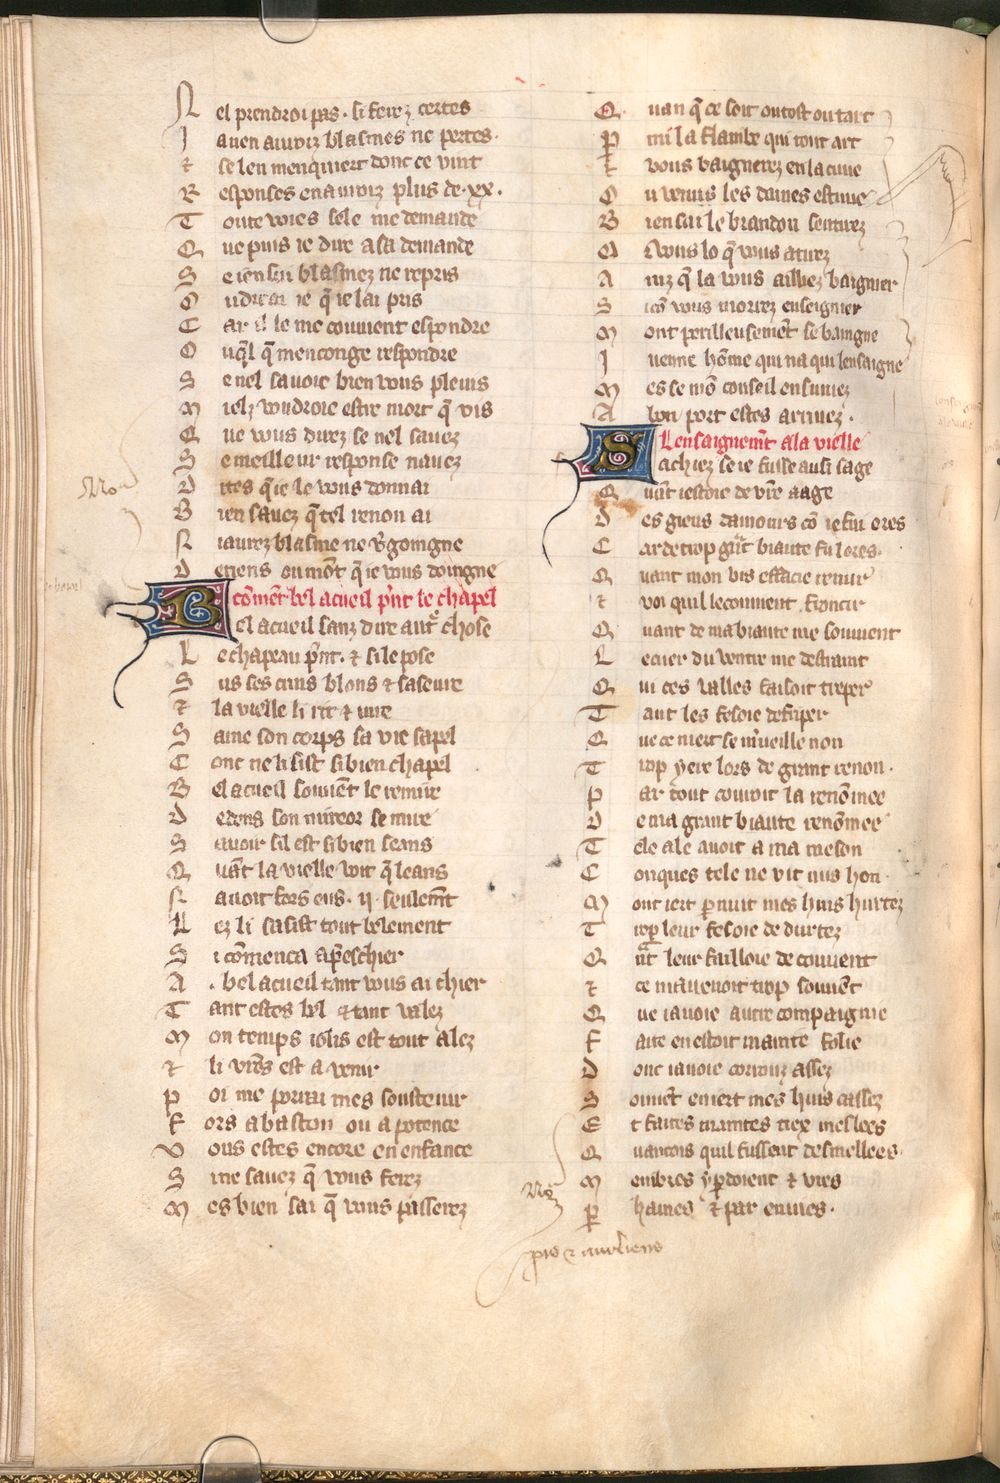 N el prendroi pas . si ferez certes
J a uen aurez blasmes ne pertes .
⁊ se len menquiert donc ce vint
R esponses en aurez plus de .xx.
T oute voies sele me demande
Q ue puis ie dire a sa demande
S e ien sui blasmez ne repris
O u dirai ie q̃ ie lai pris
C ar il le me couuient espondre
O u q̃lq̃ menconge respondre
S e nel sauoie bien vous pleuis
M ielz voudroie estre mort q̃ vis
Q ue vous direz se nel sauez
S e meilleur response nauez
D ites q̃ ie le vous donnai
B ien sauez q̃ tel renon ai
N i aurez blasme ne v̾goigne
D e riens ou mõt q̃ ie vous doingne
cõmẽt bel acueil p̃nt le chapel
B el acueil sanz dire autr̾ chose
L e chapeau p̃nt . ⁊ si le pose
S us ses crins blons ⁊ saseure
⁊ la vielle li rit ⁊ iure
S ame son corps sa vie sa pel
C onc ne li sist si bien chapel
B el acueil souuẽt le remire
D edens son mireor se mire
S auoir sil est si bien seans
Q uãt la vielle voit q̃ leans
N auoit fors eus . ij . seulemẽt
L ez li sasist tout belement
S i cõmenca a p̃eschier
A . bel acueil tant vous ai chier
T ant estes bel ⁊ tant valez
M on temps iolis est tout alez
⁊ li vr̃es est a venir
P oi me porrai mes soustenir
F ors a baston ou a potence
V ous estes encore en enfance
S i ne sauez q̃ vous ferez
M es bien sai q̃ vous passerez
Q uan q̃ ce soit ou tost ou tart
P mi la flambe qui tout art
⁊ vous baignerez en la cuue
O u venus les dames estuue
B ien sai le brandon sentirez
Q vous lo q̃ vous atirez
A inz q̃ la vous ailliez baignier
S icõ vous morrez enseignier
M ont perilleusemẽt se baingne
J uenne hõme qui na qui lensaigne
M es se mõ conseil ensuuiez
A bon port estes arriuez .
Lensaignemẽt a la vielle
S achiez se ie fusse ausi sage
Q uãt iestoie de vr̃e aage
D es gieus damours cõ ie sui ores
C ar de trop grãt biaute fu lores .
Q uant mon vis efface remir̾
⁊ voi quil le couuient froncir
Q uant de ma biaute me souuient
L e cuer du ventre me destraint
Q ui ces valles faisoit treper
T ant les fesoie defriper
Q ue ce niert se m̾ueille non
T rop yere lors de grant renon .
P ar tout couroit la renõmee
D e ma grant biaute renõmee
T ele ale auoit a ma meson
C onques tele ne vit nus hon .
M ont iert p nuit mes huis hurtez
T rop leur fesoie de durtez
Q ñt leur failloie de couuent
⁊ ce mauenoit trop souuẽt
Q ue iauoie autre compaignie
F aite en estoit mainte folie
D onc iauoie corrouz assez
S ouuẽt en iert mes huis cassez
E t faites maintes tiex meslees
Q uancois quil fussent desmellees .
M embres y pdoient ⁊ vies
P haines ⁊ par enuies .